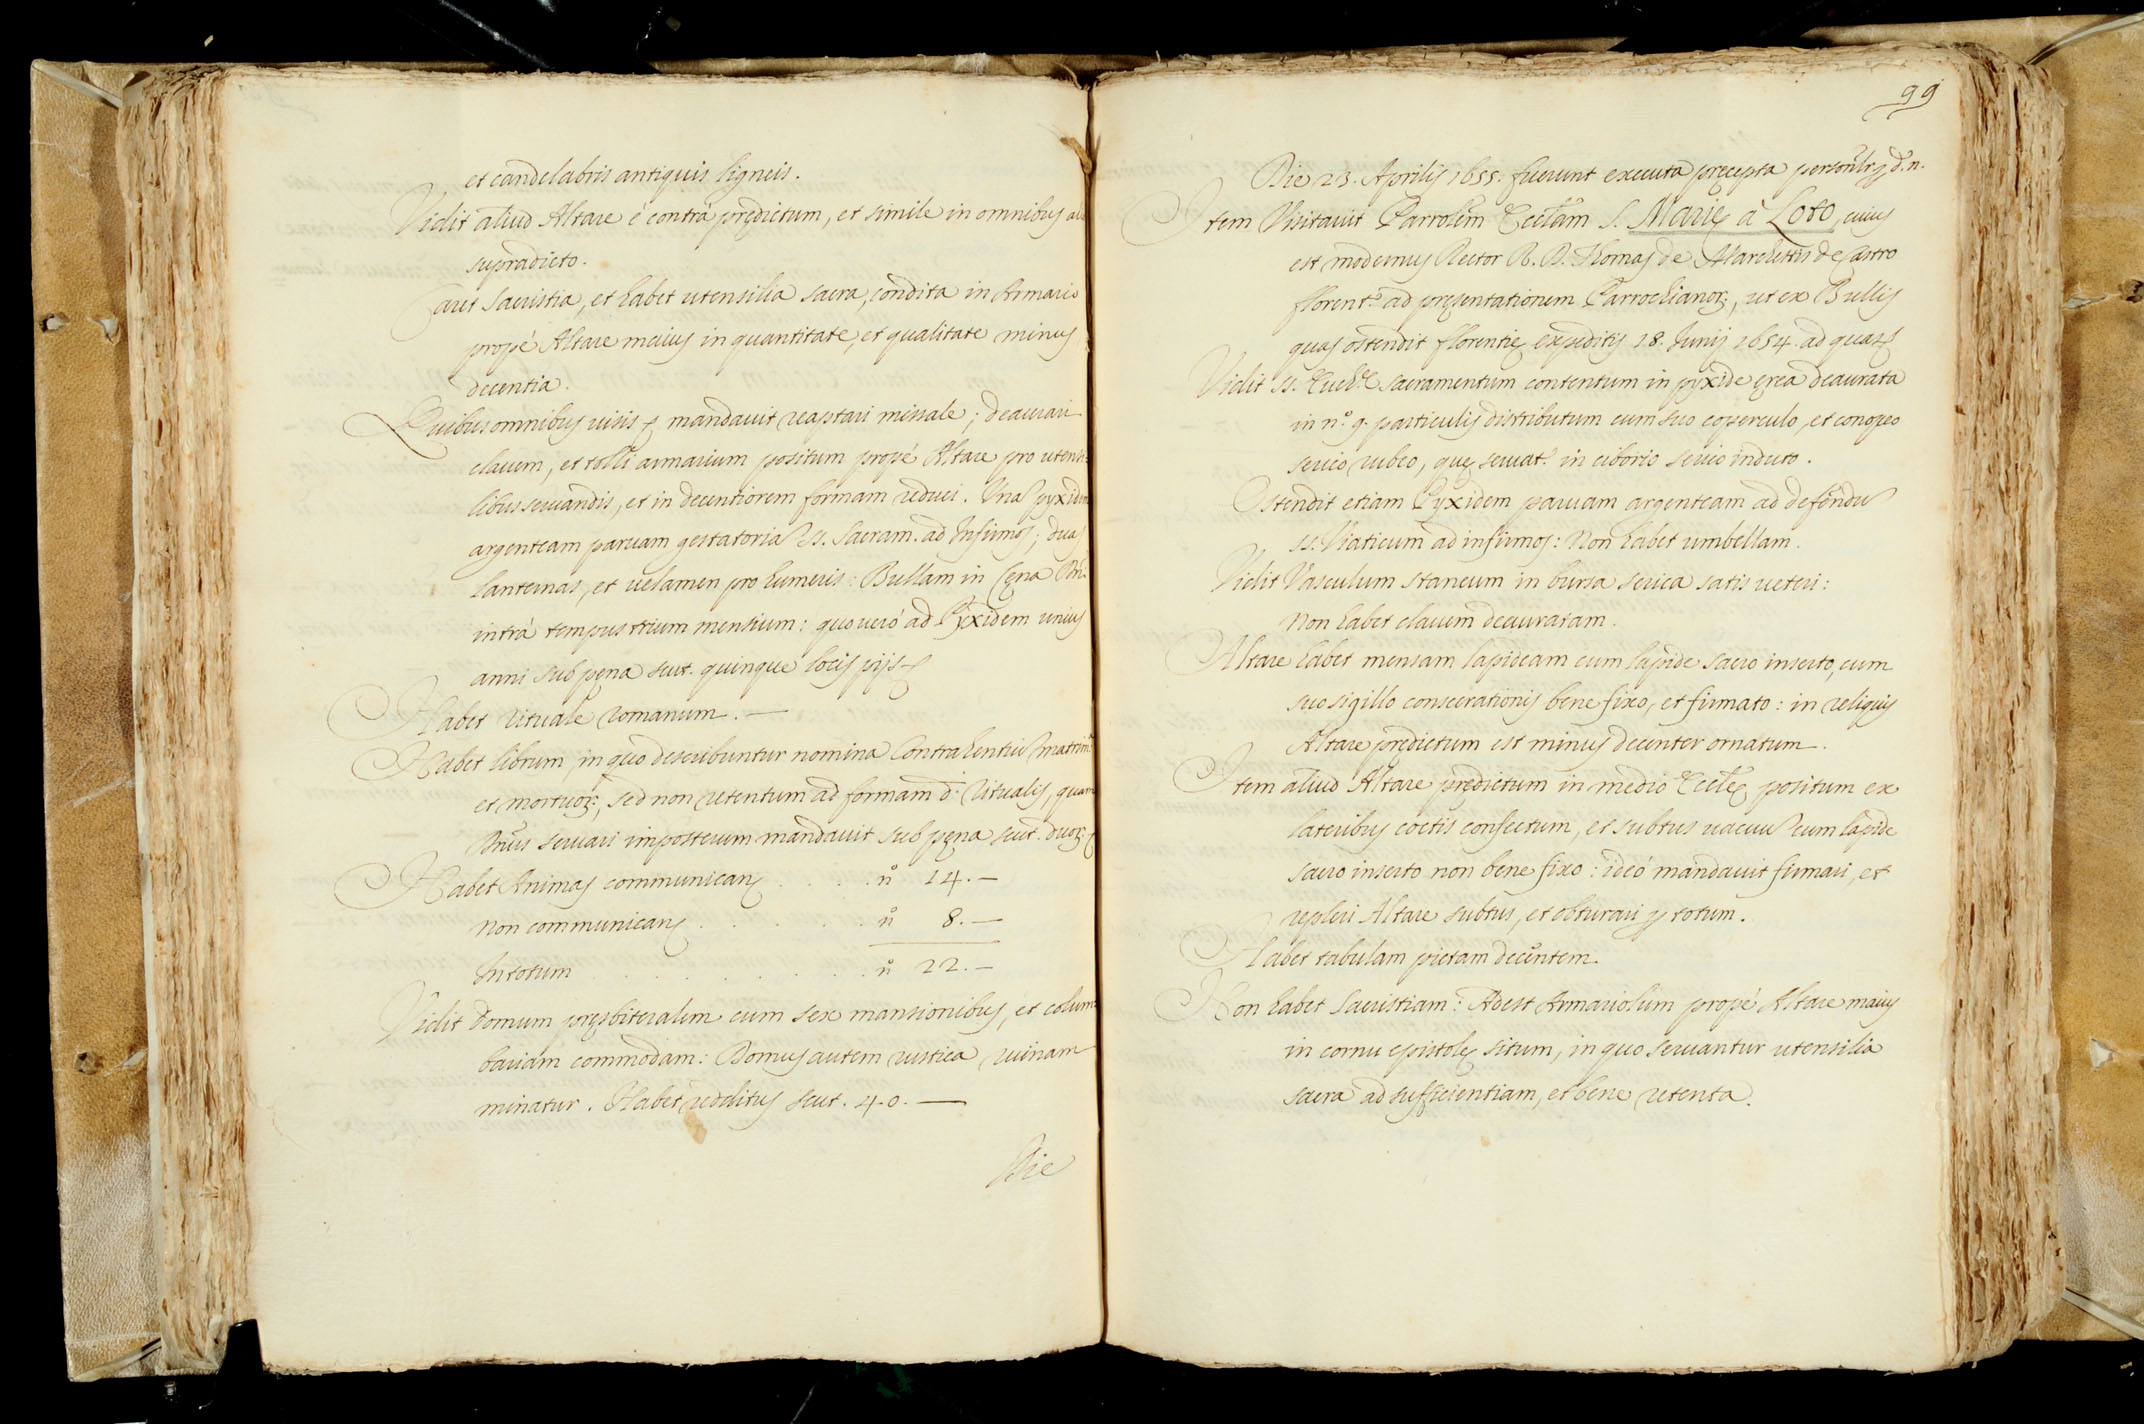 et candelabris antiquis ligneis.
Vidit aliud Altare è contrà prędictum, et simile in omnibus
supradicto.
Caret Sacristia, et habet utensilia sacra, condita in Armario
propè Altare maius in quantitate, et qualitate minus
decentia.
Quibus omnibus visis mandavit reaptari missale; deaurari
clavem, et tolli armarium positum propè Altare pro utensi-
libus servandis, et in decentiorem formam reduci. Una pyxidem
argenteam parvam gestatoria SS. Sacram. ad Infirmos; duas
lanternas, et velamen pro humeris: Bullam in Cęna
intrà tempus trium mensium: quo verò ad Pyxidem unius
anni sub pęna scut. quinque locis pijs
Habet rituale romanum. —
Habet librum, in quo describuntur nomina Contrahentiũ matrim.
et mortuor; sed non retentum ad formam d. Ritualis, quam
servari imposterum mandavit sub pęna scut. duor.
Habet Animas communicanˢ . . . . nº 14. —
Non communicanˢ . . . . . . . nº 8. —
In totum . . . . . . . . nº 22. —
Vidit domum pręsbiteralem cum sex mansionibus, et colum-
bariam commodam: Domus autem rustica ruinam
minatur. Habet redditus scut. 40. —
Die
99
Die 23. Aprilis 1655. fuerunt executa pręcepta
Item Visitavit Parrolem Eccłam S. Marię à Loto, cuius
est modernus Rector R. D. Thomas de Marchettis de Castro
florent.º ad pręsentationem Parrochianor:, ut ex Bullis
quas ostendit florentię expeditis 18. Junij 1654. ad quas
Vidit SS. Euchᵃᵉ sacramentum contentum in pyxide ęrea deaurata
in nº. 9. particulis distributum cum suo coperculo, et conopeo
serico rubeo, quę servatʳ. in ciborio serico induto.
Ostendit etiam Pyxidem parvam argenteam ad defẽndũ
SS. Viaticum ad infirmos: Non habet umbellam.
Vidit Vasculum staneum in bursa serica satis veteri:
Non habet clavem deauratam.
Altare habet mensam lapideam cum lapide sacro inserto, cum
suo sigillo consecrationis bene fixo, et firmato: in reliquis
Altare prędictum est minus decenter ornatum.
Item aliud Altare prędictum in medio Eccłę positum ex
lateribus coctis confectum, et subtus vacuũ cum lapide
sacro inserto non bene fixo: ideò mandavit firmari, et
repleri Altare subtus, et obturari p totum.
Habet tabulam pictam decẽntem.
Non habet Sacristiam: Adest Armariolum propè Altare maius
in cornu epistolę situm, in quo servantur utensilia
sacra ad sufficientiam, et bene retenta.